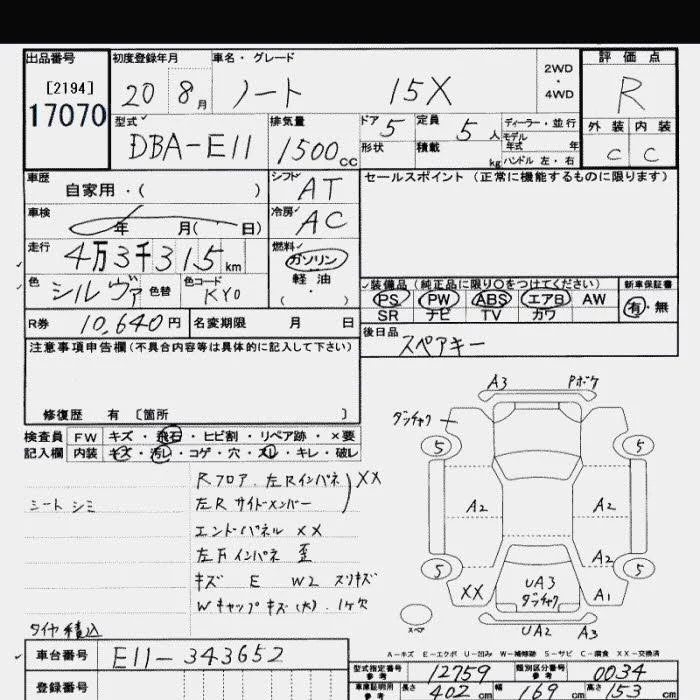 出品番号 初度登録年月 車名・グレード 2WD・4WD 評価点
[2194]
17070
20 8月 ノート 15X R
型式 排気量 ドア 定員 ディーラー・並行
DBA-E11 1500cc 5 5人 モデル年式 年
形状 積載 kg ハンドル 左・右
外装 内装
C C
車歴 シフト セールスポイント(正常に機能するものに限ります)
自家用・( ) AT
車検 冷房
年 月( 日) AC
走行 燃料
4万3千315km ガソリン
軽油
( ・ )
色 シルヴァ 色替 色コード KY0
装備品(純正品に限り○をつけてください) 新車保証書
PS PW ABS エアB AW 有・無
SR ナビ TV カワ
R券 10,640円 名変期限 月 日
後日品 スペアキー
注意事項申告欄(不具合内容等は具体的に記入して下さい)
修復歴 有 〔箇所 〕
検査員 FW キズ・飛石・ヒビ割・リペア跡・×要
記入欄 内装 キズ・汚レ・コゲ・穴・スレ・キレ・破レ
シートシミ
Rフロア.左Rインパネ XX
左Rサイドメンバー
エンドパネル XX
左Fインパネ 歪
キズ E W2 スリキズ
Wキャップキズ(大).1ケ欠
タイヤ積込
A3 Pボケ
ダッチャク
5 5
A2 A2
A2
5 5
XX UA3 A1
ダッチャク
スペア
UA2 A3
A-キズ E-エクボ U-凹み W-補修跡 S-サビ C-腐食 XX-交換済
車台番号 E11-343652
登録番号
型式指定番号 参考 12759 類別区分番号 参考 0034
車庫証明用 参考 長さ 402cm 幅 169cm 高さ 153cm